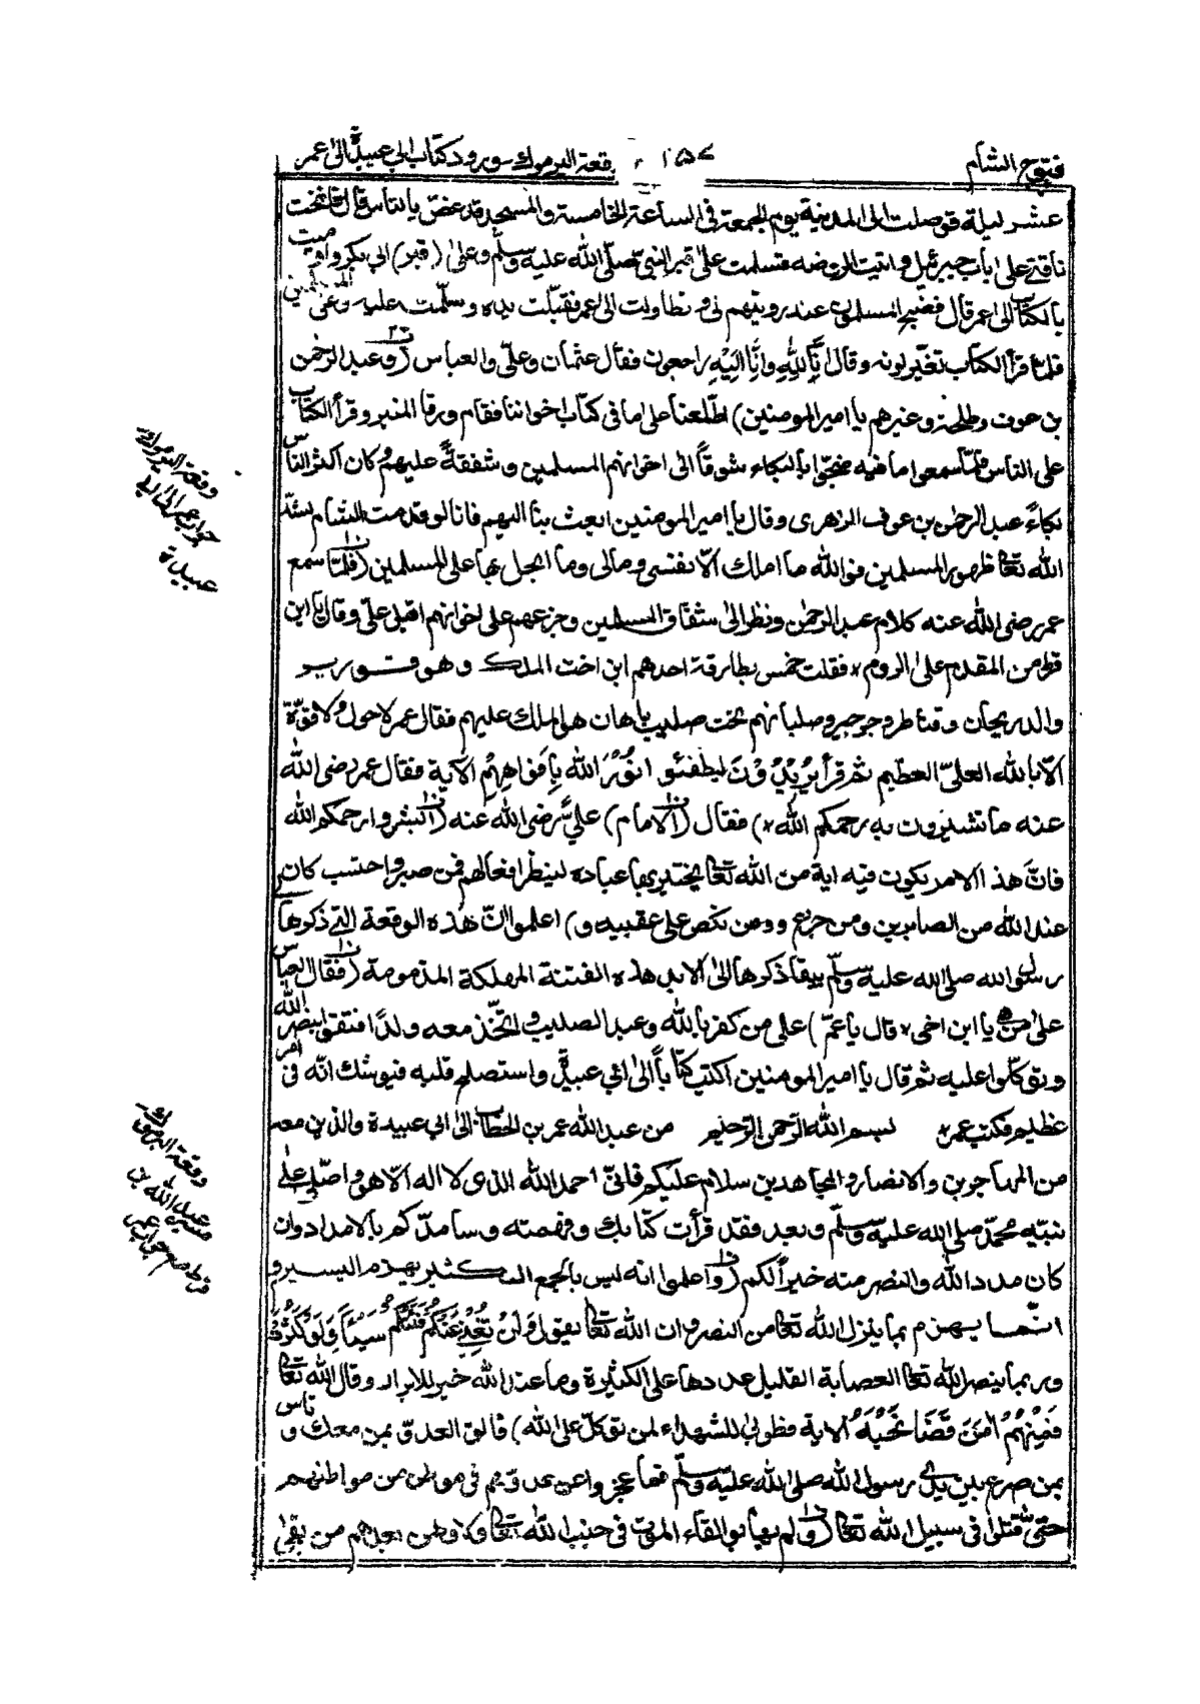 فتوح الشام ١٥٧ وقعة اليرموك وورود كتاب ابى عبيدة الى عمر
عشر ليلة فوصلت الى المدينة يوم الجمعة فى الساعة الخامسة والمسجد قد غض بالناس قال فانخت
ناقتى على باب جبرئيل واتيت الروضه فسلمت على قبر النبى صلى الله عليه وسلم وعلى (قبر) ابى بكر واوميت
بالكتاب الى عمر قال فضج المسلمون عند رويتهم لى وتطاولت الى عمر فقبلت يده وسلمت عليه
فلما قرأ الكتاب تغير لونه وقال إنا لله وإنا اليه راجعون فقال عثمان وعلى والعباس (وعبد الرحمن
بن عوف وطلحة وغيرهم يا امير المومنين) اطلعنا على ما فى كتاب اخواننا فقام ورقا المنبر وقرأ الكتاب
على الناس فلما سمعوا ما فيه ضجوا بالبكاء شوقاً الى اخوانهم المسلمين وشفقةً عليهم وكان اكثر الناس
بكاءً عبد الرحمن بن عوف الزهرى وقال يا امير المومنين ابعث بنا اليهم فانا لو قدمت الشام لشد
الله تعالى ظهور المسلمين فوالله ما املك الا نفسى ومالى وما ابخل بها على المسلمين (فلما سمع
عمر رضى الله عنه كلام عبد الرحمن ونظر الى شفاق المسلمين وجزعهم على اخوانهم اقبل على وقال يا ابن
قرط من المقدم على الروم فقلت خمس بطارقة احدهم ابن اخت الملك وهو قورير و
والديرجان وقناطر وجرجير وصلبانهم تحت صليب باهان هو الملك عليهم فقال عمر لا حول ولا قوة
الا بالله العلى العظيم ثم قرأ يريدون ليطفئوا نور الله بافواههم الآية فقال عمر رضى الله
عنه ما تشيرون به يرحمكم الله) فقال (الامام) على رضى الله عنه (ابشروا رحمكم الله
فان هذا الامر يكون فيه اية من الله تعالى يختبر بها عباده لينظر افعالهم فمن صبر واحتسب كان
عند الله من الصابرين ومن جزع ومن نكص على عقبيه و) اعلموا ان هذه الوقعة التى ذكرها
رسول الله صلى الله عليه وسلم يبقا ذكرها الى الابد هذه الفتنة المهلكة المذمومة (فقال العباس
على من هى يا ابن اخى قال يا عم) على من كفر بالله وعبد الصليب واتخذ معه ولدًا فثقوا بنصر الله
وتوكلوا عليه ثم قال يا امير المومنين اكتب كتاباً الى ابى عبيدة واستصلح قلبه فيوشك انه فى امر
عظيم فكتب عمر بسم الله الرحمن الرحيم من عبد الله عمر بن الخطاب الى ابى عبيدة والذين معه
من المهاجرين والانصار والمجاهدين سلام عليكم فانى احمد الله الذى لا اله الا هو واصلى على
نبيه محمد صلى الله عليه وسلم وبعد فقد قرأت كتابك وفهمته وسامدكم بالامداد وان
كان مدد الله والنصر منه خيراً لكم (واعلموا انه ليس بالجمع الكثير يهزم اليسير و
انما يهزم بما ينزل الله تعالى من النصر وان الله تعالى يقول ولن تغنى عنكم فئتكم شيئاً ولو كثرت
وربما ينصر الله تعالى العصابة القليل عددها على الكثيرة وما عند الله خير للابرار وقال الله تعالى
فمنهم من قضا نحبه الاية فطوبى للشهداء لمن توكل على الله) فالق العدو بمن معك وتاس
بمن صرع بين يدى رسول الله صلى الله عليه وسلم فما عجزوا عن عدوهم فى مواطن من مواطنهم
حتى قتلوا فى سبيل الله تعالى (ولم يهابوا لقاء الموت فى جنب الله تعالى وما وهن بعدهم من بقى
وقعة اليرموك
عبيدة
وقعة اليرموك
عبد الله بن
قرط مع جواب عمر